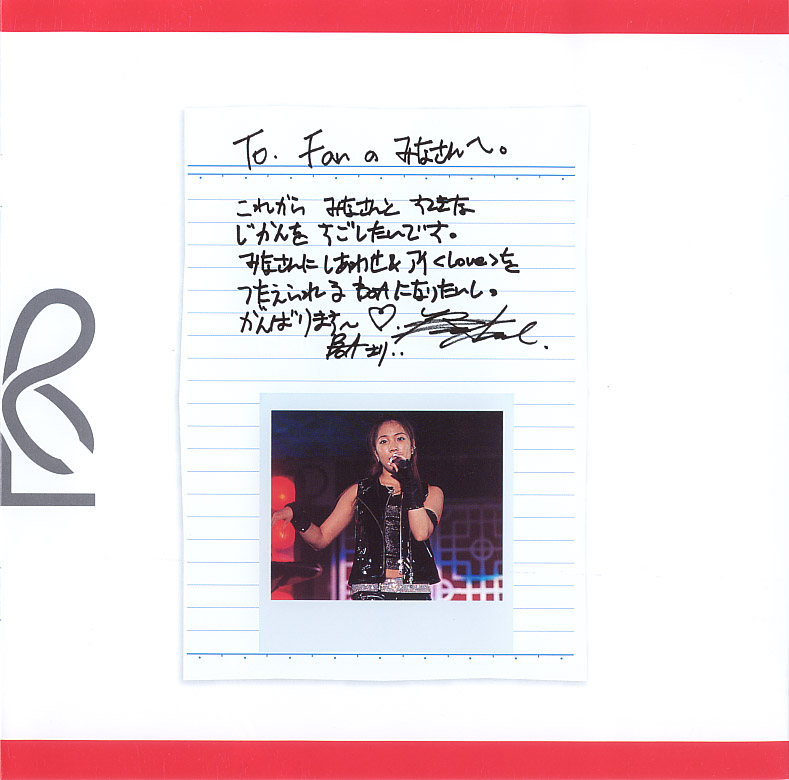 To. Fan の みなさんへ。
これから みなさんと すてきな
じかんを すごしたいです。
みなさんに しあわせ& アイ<Love>を
つたえられる BoAになりたいし。
がんばります〜 ♡.
より..